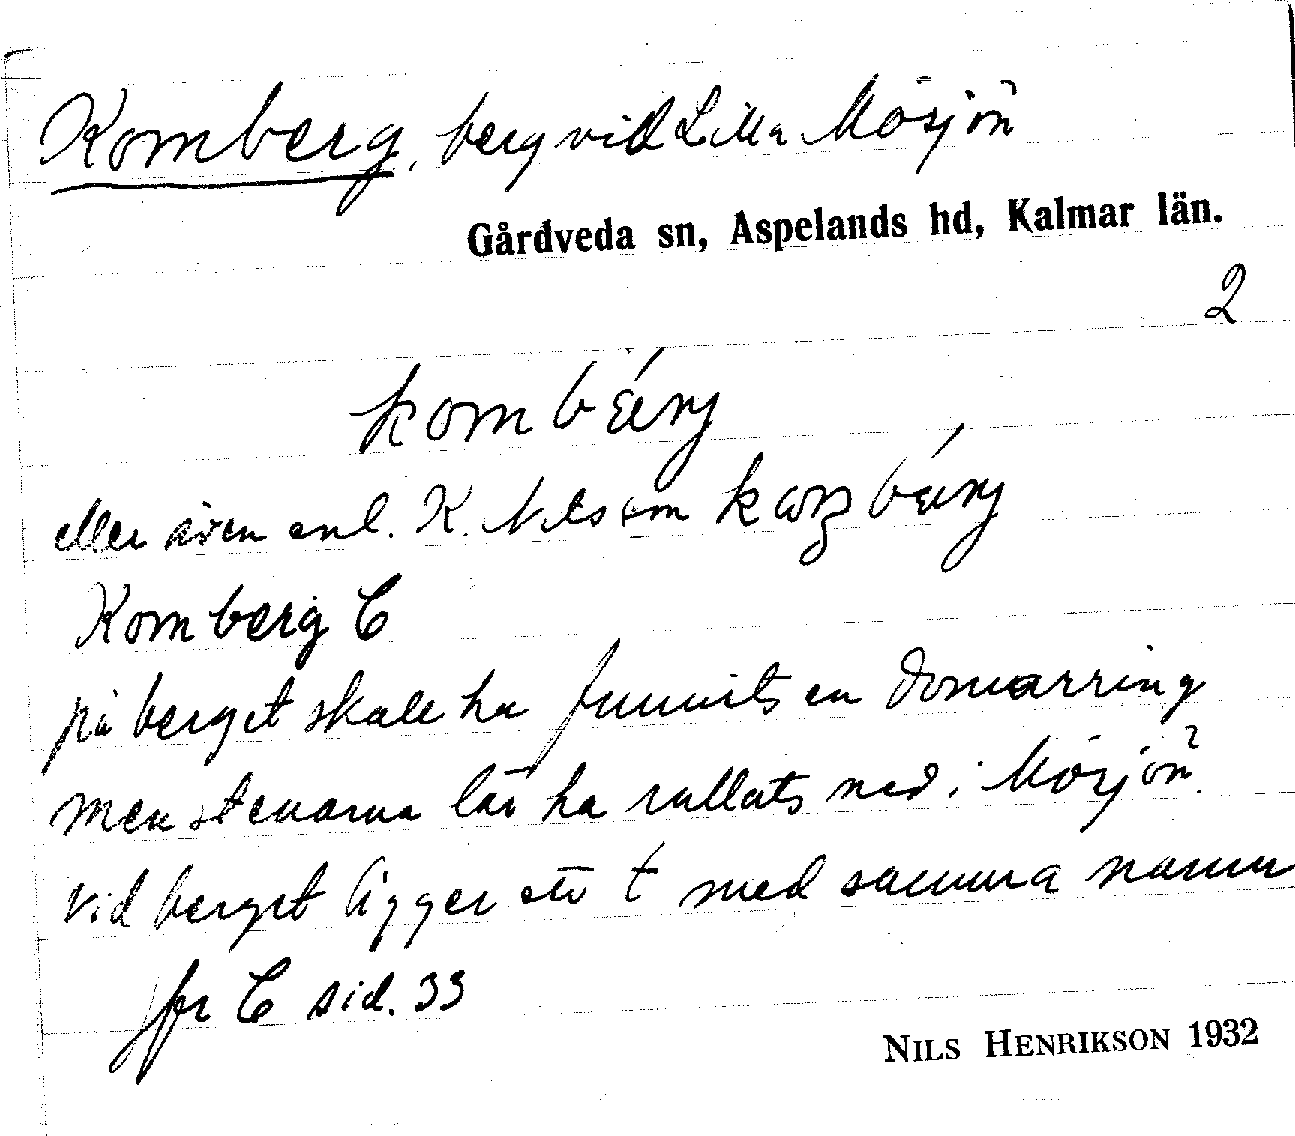 Komberg, berg vid Lilla Mösjön
Gårdveda sn, Aspelands hd, Kalmar län.
2
komb
eller även enl. K. Nilsson
Komberg C
på berget skall ha funnits en domarring
men stenarna lär ha rullats ned i Mösjön.
vid berget ligger ett t med samma namn
jfr C sid. 33
NILS HENRIKSON 1932